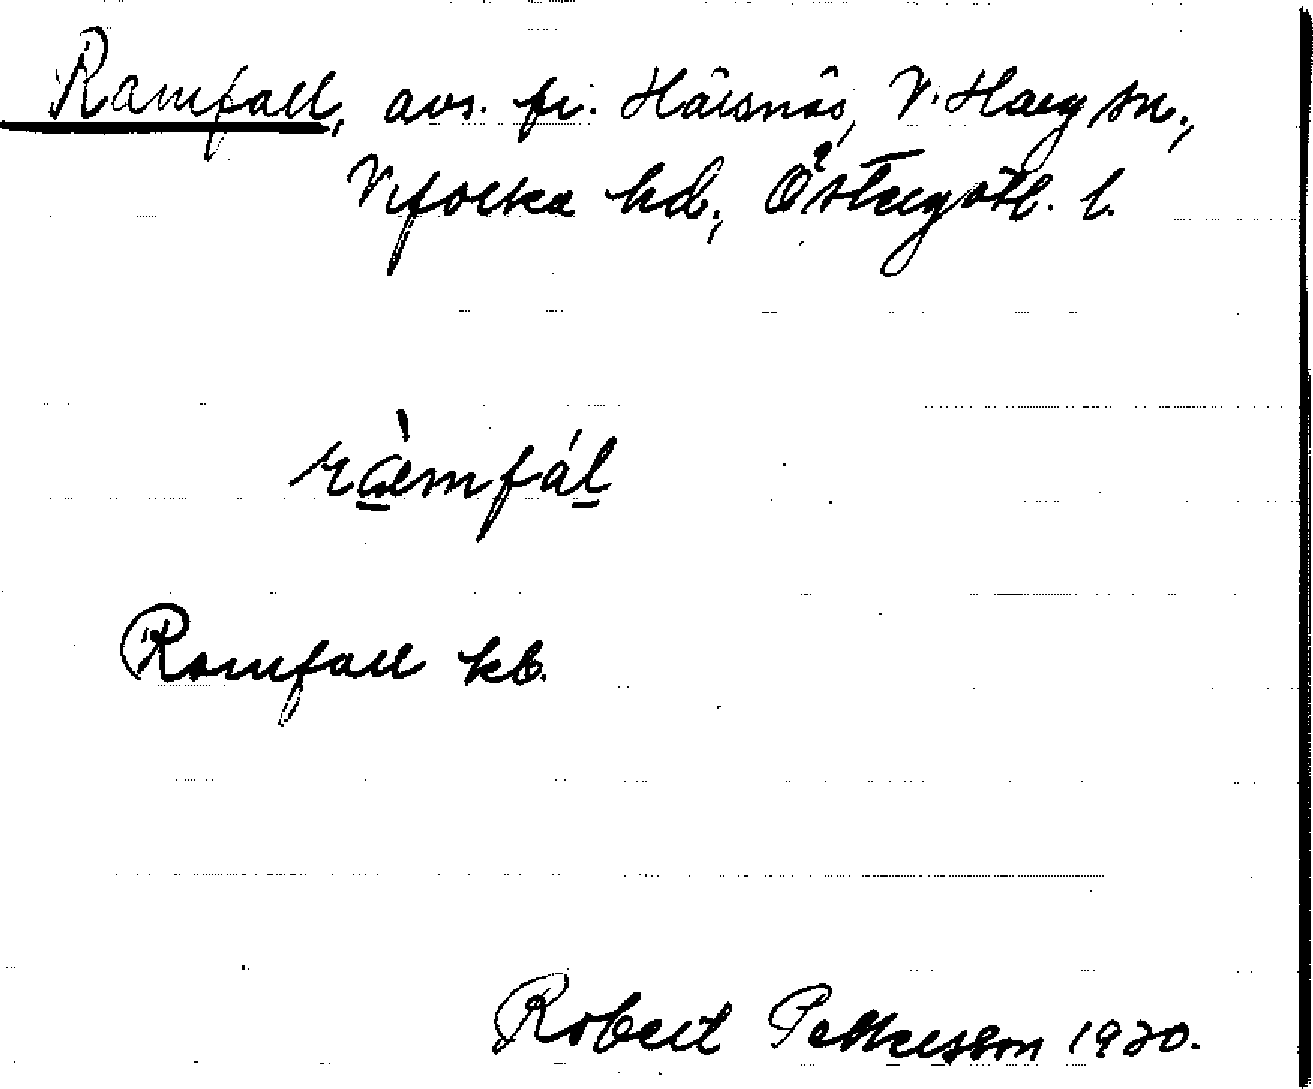 Ramfall, avs. fr. Härsnäs, V. Harg sn.,
Vifolka hd., Östergötl. l.
ràmfál
Ramfall kb.
Robert Pettersson 1920.